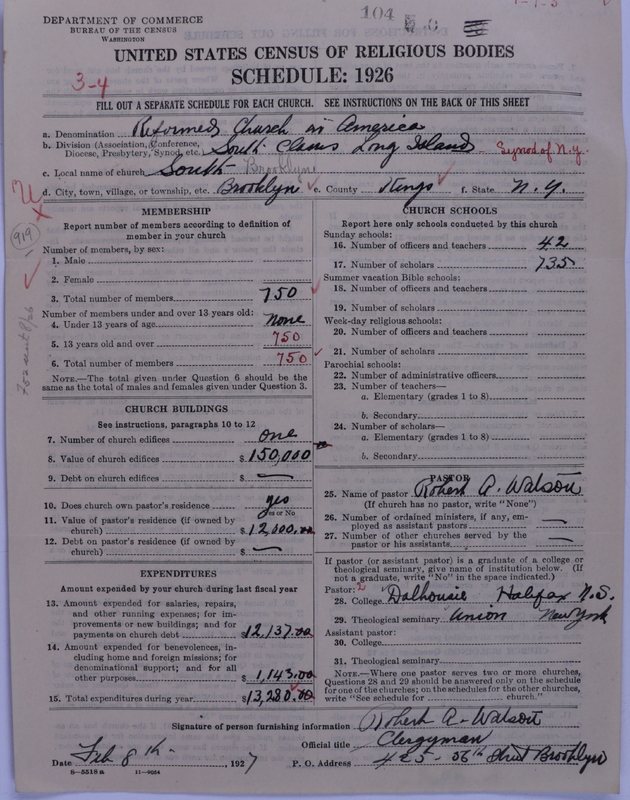 DEPARTMENT OF COMMERCE
BUREAU OF THE CENSUS
WASHINGTON
104
UNITED STATES CENSUS OF RELIGIOUS BODIES
SCHEDULE: 1926
3-4
FILL OUT A SEPARATE SCHEDULE FOR EACH CHURCH. SEE INSTRUCTIONS ON THE BACK OF THIS SHEET
a. Denomination Reformed Church in America
b. Division (Association, Conference, Diocese, Presbytery, Synod, etc. South Classis Long Island Synod of N.Y.
c. Local name of church South Brooklyn
d. City, town, village, or township, etc. Brooklyn e. County Kings f. State N.Y.
919
MEMBERSHIP
Report number of members according to definition of
member in your church
Number of members, by sex:
1. Male
2. Female
3. Total number of members 750
Number of members under and over 13 years old:
4. Under 13 years of age none
5. 13 years old and over 750
6. Total number of members 750
NOTE.—The total given under Question 6 should be the
same as the total of males and females given under Question 3.
CHURCH BUILDINGS
See instructions, paragraphs 10 to 12
7. Number of church edifices one
8. Value of church edifices $150,000
9. Debt on church edifices $ —
10. Does church own pastor's residence yes
Yes or No
11. Value of pastor's residence (if owned by
church) $12,000.00
12. Debt on pastor's residence (if owned by
church) $ —
EXPENDITURES
Amount expended by your church during last fiscal year
13. Amount expended for salaries, repairs,
and other running expenses; for im-
provements or new buildings; and for
payments on church debt $12,137.00
14. Amount expended for benevolences, in-
cluding home and foreign missions; for
denominational support; and for all
other purposes $1,143.00
15. Total expenditures during year $13,280.00
CHURCH SCHOOLS
Report here only schools conducted by this church
Sunday schools:
16. Number of officers and teachers 42
17. Number of scholars 735
Summer vacation Bible schools:
18. Number of officers and teachers
19. Number of scholars
Week-day religious schools:
20. Number of officers and teachers
21. Number of scholars
Parochial schools:
22. Number of administrative officers
23. Number of teachers—
a. Elementary (grades 1 to 8)
b. Secondary
24. Number of scholars—
a. Elementary (grades 1 to 8)
b. Secondary
PASTOR
25. Name of pastor Robert A. Watson
(If church has no pastor, write "None")
26. Number of ordained ministers, if any, em-
ployed as assistant pastors —
27. Number of other churches served by the
pastor or his assistants —
If pastor (or assistant pastor) is a graduate of a college or
theological seminary, give name of institution below. (If
not a graduate, write "No" in the space indicated.)
Pastor: 2
28. College Dalhousie Halifax N.S.
29. Theological seminary Union New York
Assistant pastor:
30. College
31. Theological seminary
NOTE.—Where one pastor serves two or more churches,
Questions 28 and 29 should be answered only on the schedule
for one of the churches; on the schedules for the other churches,
write "See schedule for church."
Signature of person furnishing information Robert A. Watson
Official title Clergyman
Date Feb 8th 1927 P. O. Address 425-56th Street Brooklyn
8-5518a 11-8054